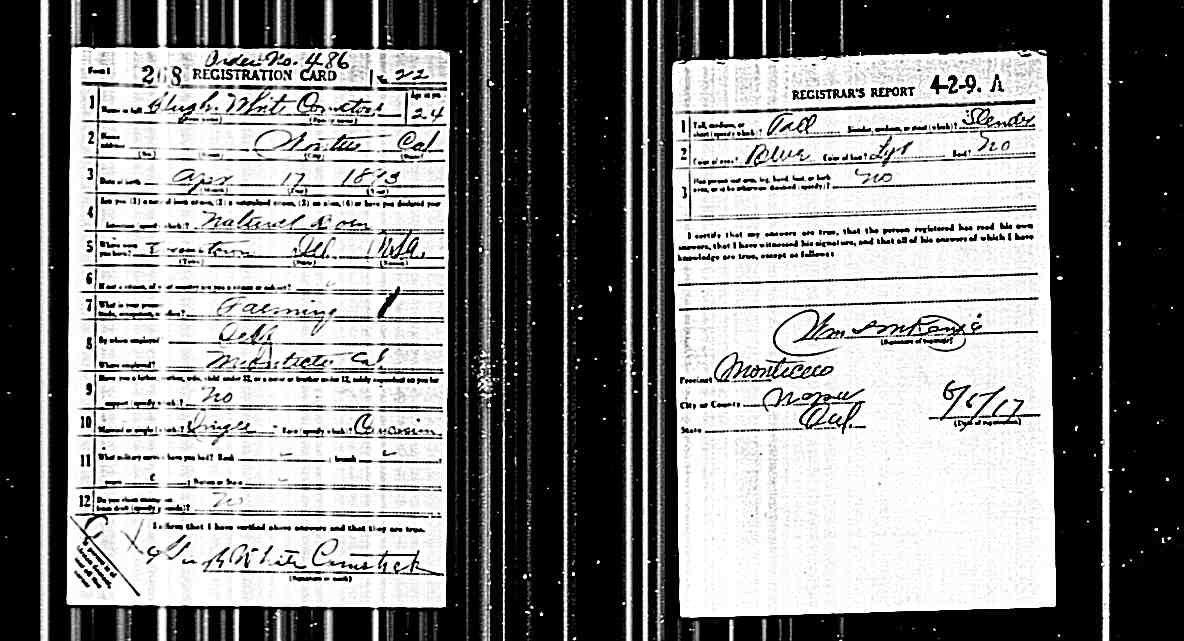 Order No. 486
Form 1 268 REGISTRATION CARD No. 22
1 Name in full Hugh White Comstock Age in yrs. 24
(Given name) (Family name)
2 Home address Winters Cal
(No.) (Street) (City) (State)
3 Date of birth Apr 17 1893
(Month) (Day) (Year)
4 Are you (1) a natural born citizen, (2) a naturalized citizen, (3) an alien, (4) or have you declared your
intention (specify which)? Natural Born
5 Where were you born? Ill. USA.
(Town) (State) (Nation)
6 If not a citizen, of what country are you a citizen or subject?
7 What is your present trade, occupation, or office? Farming
8 By whom employed Self
Where employed? Monticello Cal
9 Have you a father, mother, wife, child under 12, or a sister or brother under 12, solely dependent on you for
support (specify which)? No
10 Married or single (which)? Single Race (specify which)? Caucasian
11 What military service have you had? Rank ; branch ;
years ; Nation or State
12 Do you claim exemption from draft (specify grounds)? No
I affirm that I have verified above answers and that they are true.
Hugh White Comstock
(Signature or mark)
REGISTRAR'S REPORT 4-2-9. A
1 Tall, medium, or short (specify which)? Tall Slender, medium, or stout (which)? Slender
2 Color of eyes? Blue Color of hair? Lgt Bald? No
3 Has person lost arm, leg, hand, foot, or both eyes, or is he otherwise disabled (specify)? No
I certify that my answers are true, that the person registered has read his own
answers, that I have witnessed his signature, and that all of his answers of which I have
knowledge are true, except as follows:
Wm McKenzie
(Signature of registrar)
Precinct Monticello
City or County Napa
State Cal.
6/5/17
(Date of registration)